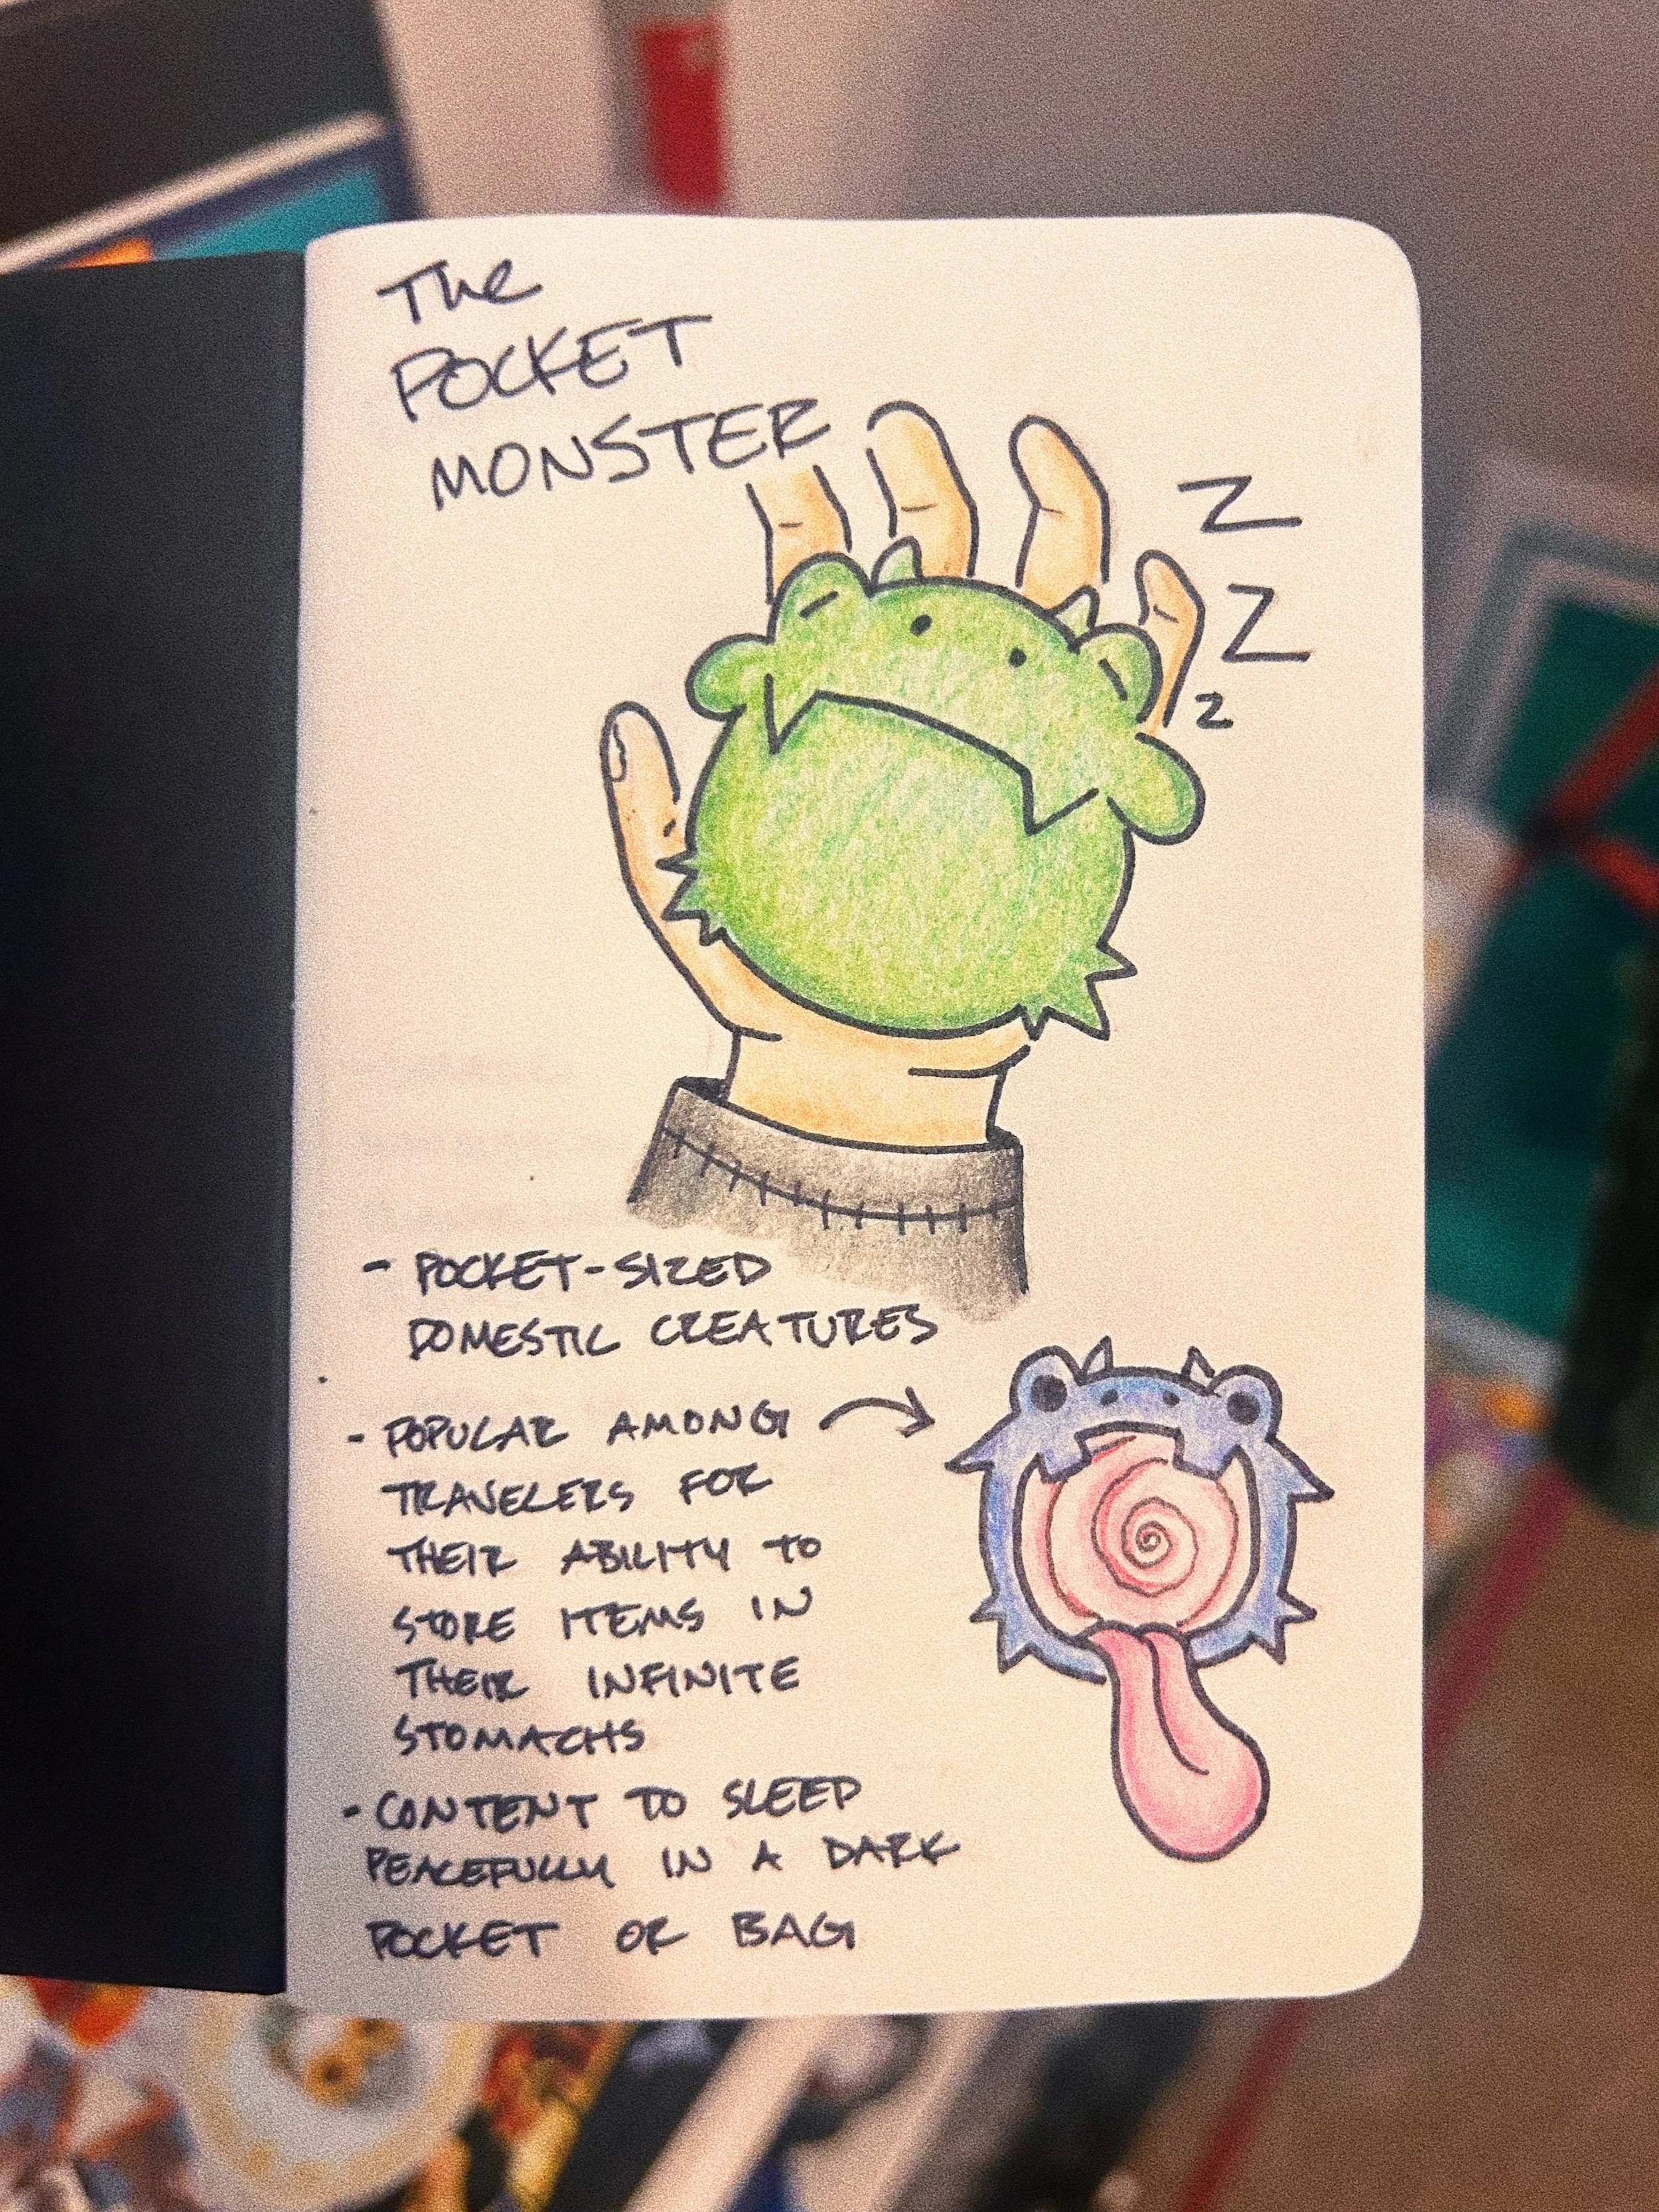 The
POCKET
MONSTER
Z
Z
z
- POCKET-SIZED
DOMESTIC CREATURES
- POPULAR AMONG
TRAVELERS FOR
THEIR ABILITY TO
STORE ITEMS IN
THEIR INFINITE
STOMACHS
- CONTENT TO SLEEP
PEACEFULLY IN A DARK
POCKET OR BAG